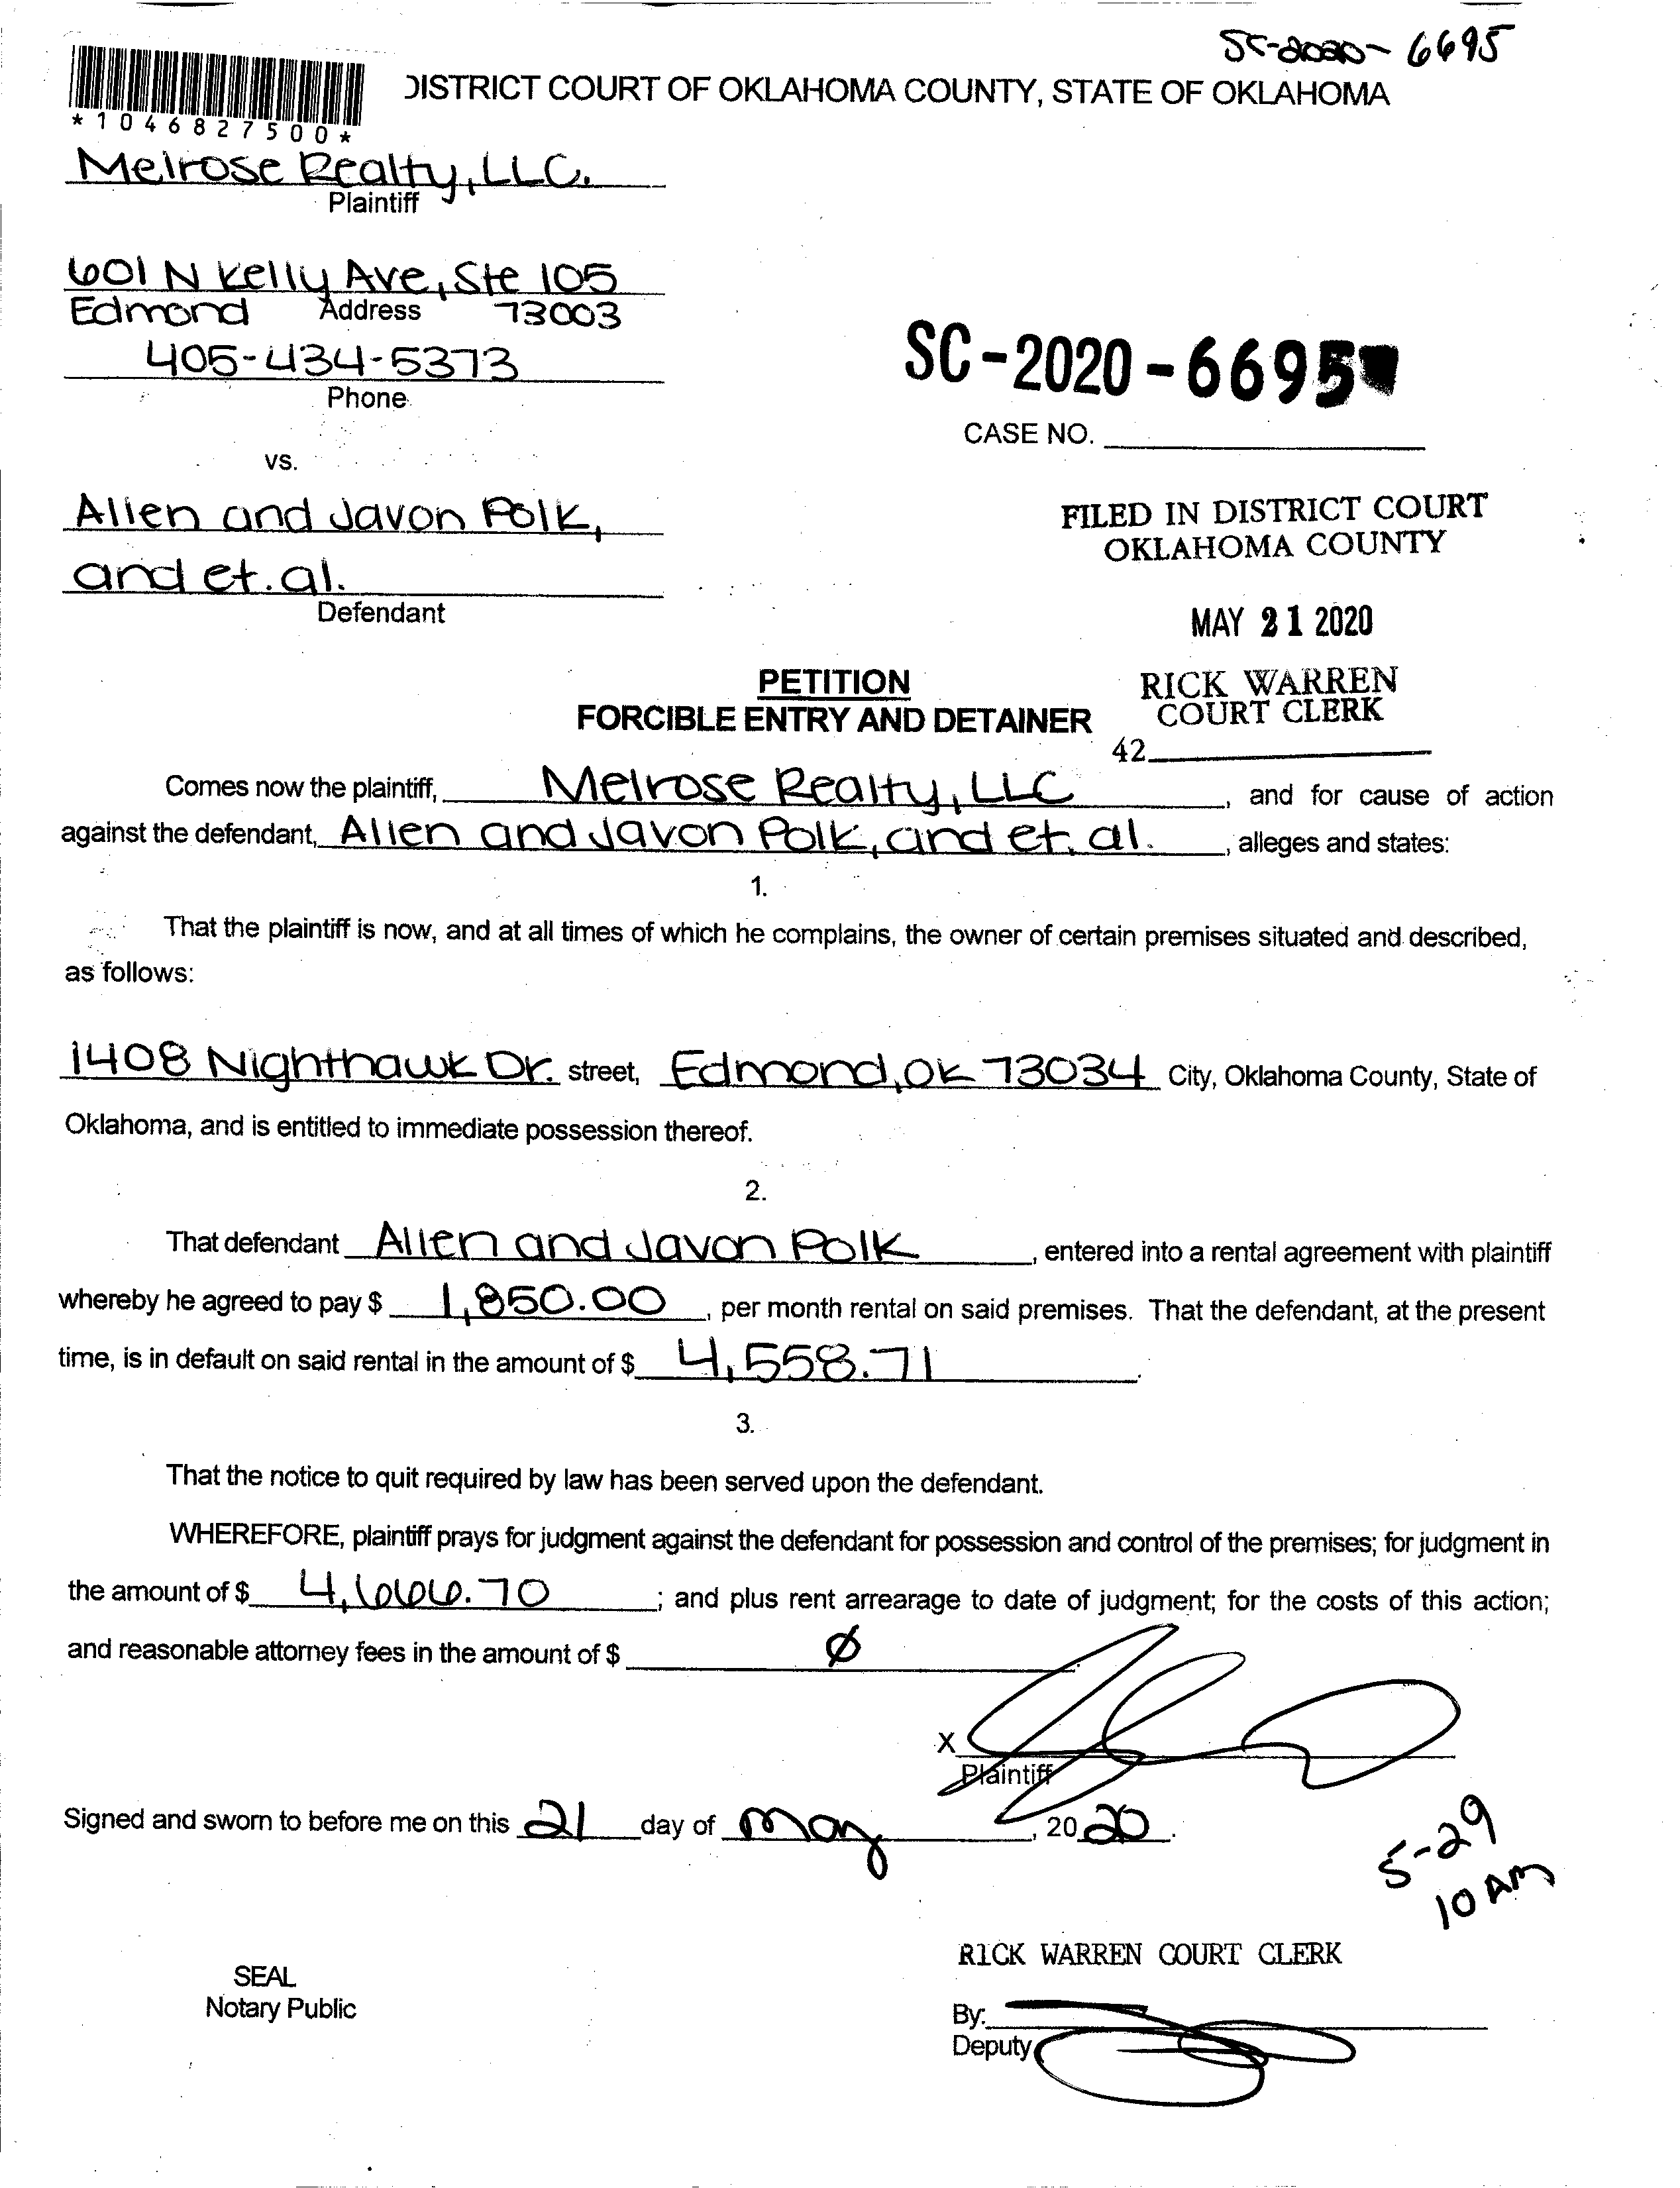 SC-2020-6695
DISTRICT COURT OF OKLAHOMA COUNTY, STATE OF OKLAHOMA
*1046827500*
Melrose Realty, LLC.
Plaintiff
601 N Kelly Ave, Ste 105
Edmond Address 73003
405-434-5373
Phone
SC-2020-6695
CASE NO.
vs.
Allen and Javon Polk,
and et. al.
Defendant
FILED IN DISTRICT COURT
OKLAHOMA COUNTY
MAY 21 2020
RICK WARREN
COURT CLERK
42
PETITION
FORCIBLE ENTRY AND DETAINER
Comes now the plaintiff, Melrose Realty, LLC, and for cause of action
against the defendant, Allen and Javon Polk, and et. al., alleges and states:
1.
That the plaintiff is now, and at all times of which he complains, the owner of certain premises situated and described,
as follows:
1408 Nighthawk Dr. street, Edmond, OK 73034 City, Oklahoma County, State of
Oklahoma, and is entitled to immediate possession thereof.
2.
That defendant Allen and Javon Polk, entered into a rental agreement with plaintiff
whereby he agreed to pay $ 1,850.00, per month rental on said premises. That the defendant, at the present
time, is in default on said rental in the amount of $ 4,558.71.
3.
That the notice to quit required by law has been served upon the defendant.
WHEREFORE, plaintiff prays for judgment against the defendant for possession and control of the premises; for judgment in
the amount of $ 4,666.70; and plus rent arrearage to date of judgment; for the costs of this action;
and reasonable attorney fees in the amount of $ Ø.
X
Plaintiff
Signed and sworn to before me on this 21 day of May, 2020.
5-29
10 AM
RICK WARREN COURT CLERK
SEAL
Notary Public
By:
Deputy